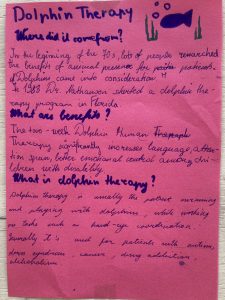 Dolphin Therapy
Where did it come from?
In the beginning of the 70s, lots of people researched
the benefits of animal presence the patients.
Dolphins came into consideration
In 1988 Dr. Nathanson started a dolphin the-
rapy program in Florida.
What are benefits?
The two-week Dolphin Human
Therapy significantly increases language, atten-
tion span, better emotional control among chil-
dren with disability.
What is dolphin therapy?
Dolphin therapy is usually the patient swimming
and playing with dolphins, while working
on tasks such as hand-eye coordination.
Usually it is used for patients with autism,
down syndrom, cancer, drug addiction
alcoholism